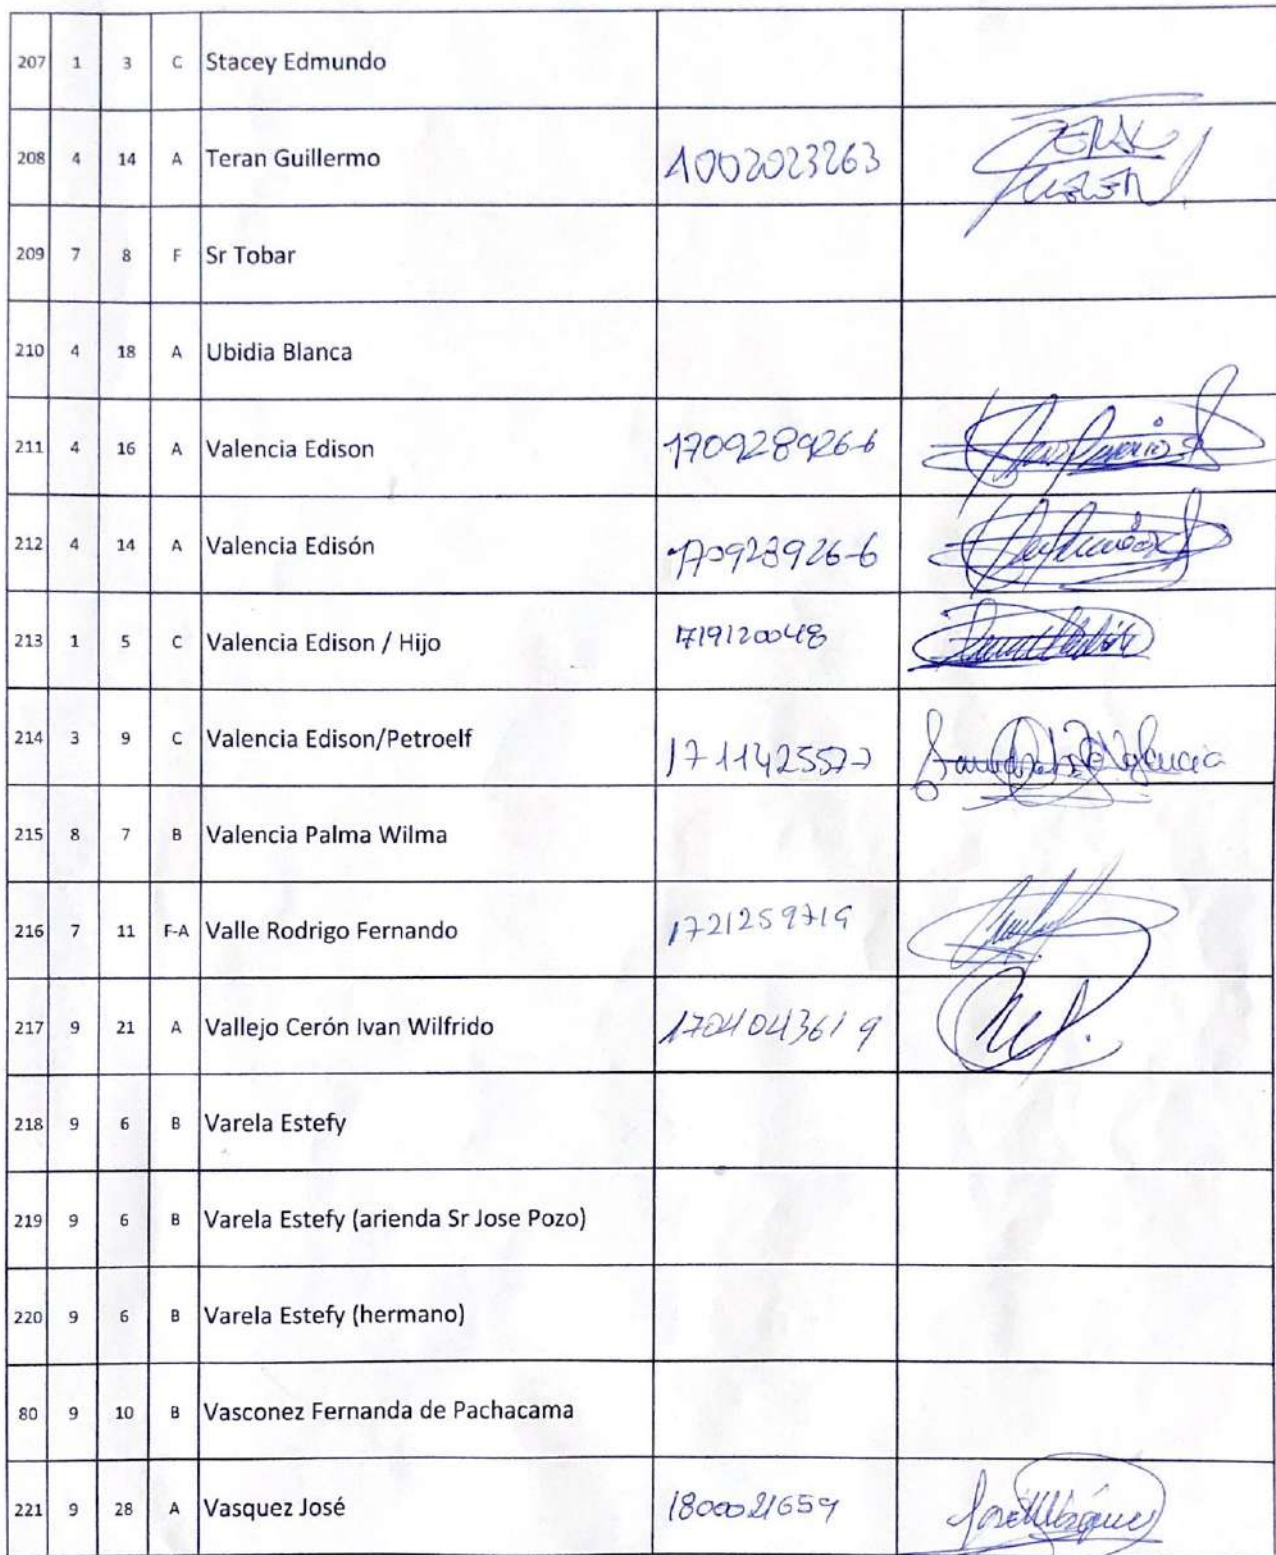 207 1 3 C Stacey Edmundo
208 4 14 A Teran Guillermo 1002023263
209 7 8 F Sr Tobar
210 4 18 A Ubidia Blanca
211 4 16 A Valencia Edison 170928926-6
212 4 14 A Valencia Edisón 170928926-6
213 1 5 C Valencia Edison / Hijo 1719120048
214 3 9 C Valencia Edison/Petroelf 1711425577
215 8 7 B Valencia Palma Wilma
216 7 11 F-A Valle Rodrigo Fernando 1721259719
217 9 21 A Vallejo Cerón Ivan Wilfrido 1704043619
218 9 6 B Varela Estefy
219 9 6 B Varela Estefy (arienda Sr Jose Pozo)
220 9 6 B Varela Estefy (hermano)
80 9 10 B Vasconez Fernanda de Pachacama
221 9 28 A Vasquez José 1800021659